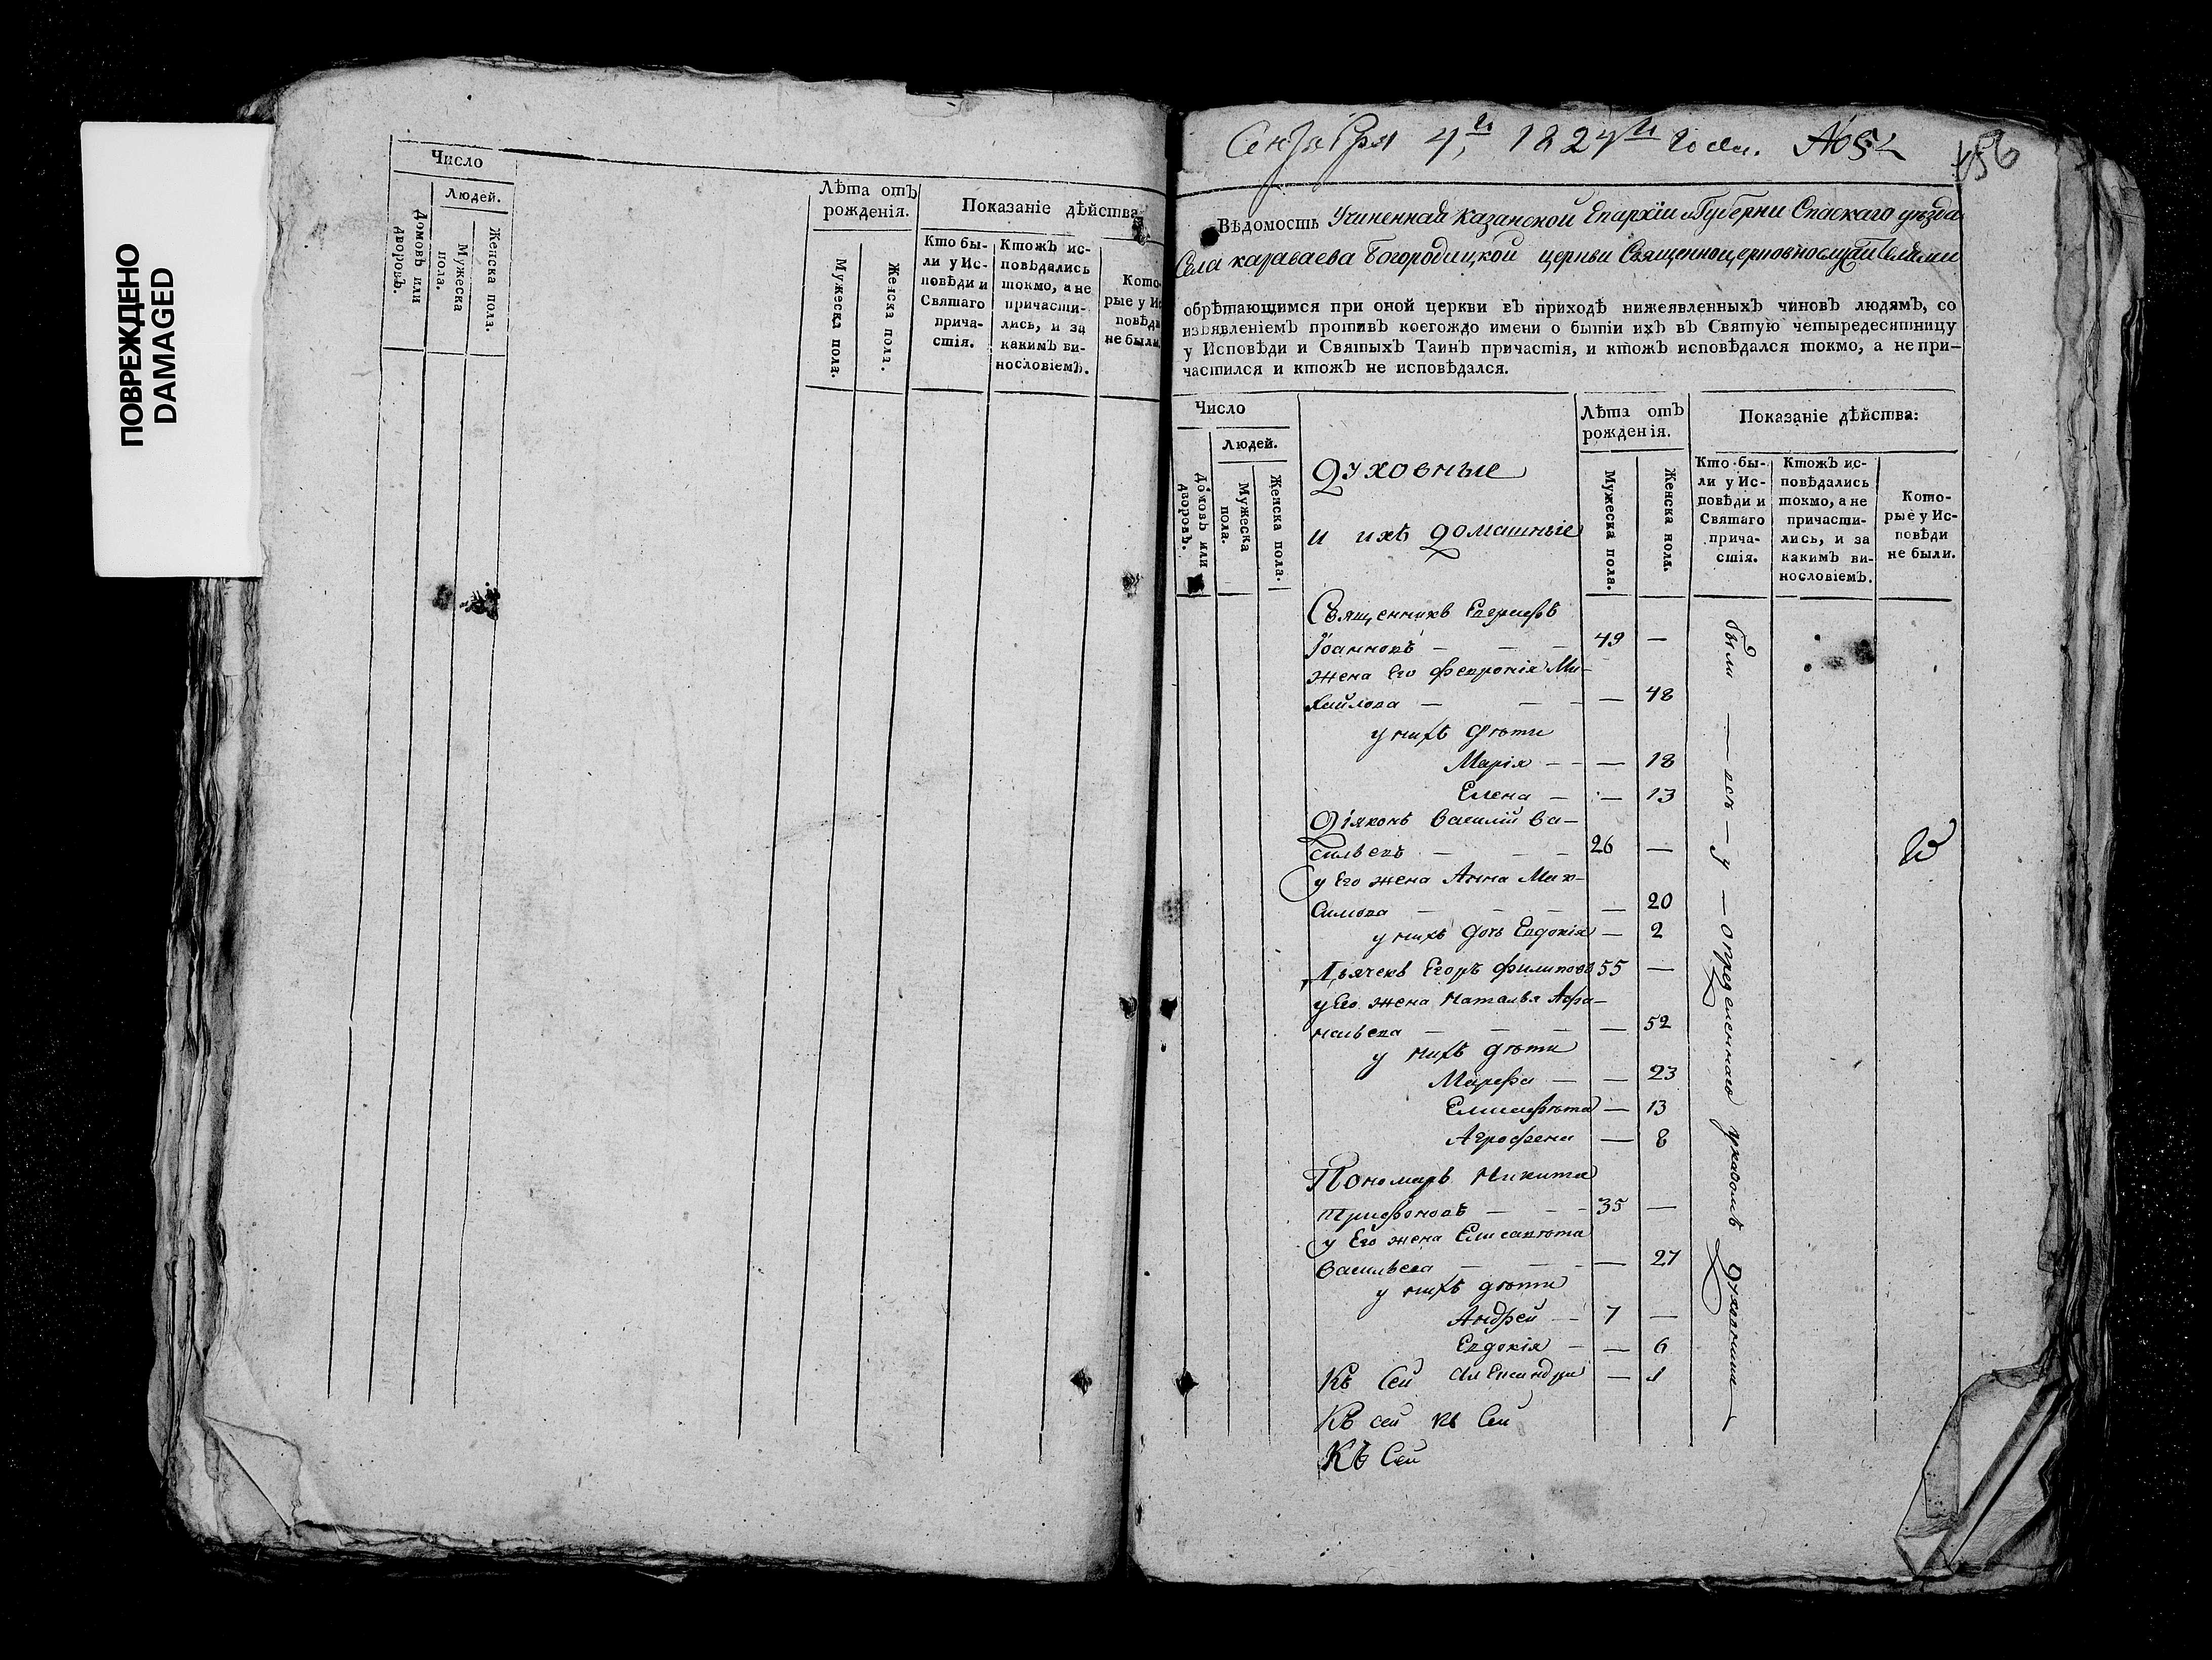 ПОВРЕЖДЕНО
DAMAGED
Число
Людей.
Домовъ или дворовъ.
Мужеска пола.
Женска пола.
Лѣта отъ рожденія.
Мужеска пола.
Женска пола.
Показаніе дѣйства
Кто бы-
ли у Ис-
повѣди и
Святаго
прича-
стія.
Ктожъ ис-
повѣдались
токмо, а не
причасти-
лись, и за
какимъ ви-
нословіемъ.
Кото-
рые у Ис
повѣди
не были.
Сентября 4,й 1824го года. №
156
Вѣдомость Учиненная Казанской Епархіи и Губерни Спаскаго уѣзда
Села караваева Богородицкой церкви Священноцерковнослужителями
обрѣтающимся при оной церкви въ приходѣ нижеявленныхъ чиновъ людямъ, со
изъявленіемъ противъ коегождо имени о бытіи ихъ въ Святую четыредесятницу
у Исповѣди и Святыхъ Таинъ причастія, и ктожъ исповѣдался токмо, а не при-
частился и ктожъ не исповѣдался.
Число
Людей.
Домовъ или дворовъ.
Мужеска пола.
Женска пола.
Духовные
и ихъ домашніе
Лѣта отъ
рожденія.
Мужеска пола.
Женска пола.
Показаніе дѣйства:
Кто бы-
ли у Ис-
повѣди и
Святаго
прича-
стія.
Ктожъ ис-
повѣдались
токмо, а не
причасти-
лись, и за
какимъ ви-
нословіемъ.
Кото-
рые у Ис-
повѣди
не были.
Священникъ
Іоанновъ — — — 49 —
жена Его Февронія Ми-
хайлова — — — — 48
у нихъ дѣти
Марія — — — 18
Елена — — 13
Діяконъ Василій Ва-
сильевъ — — — 26 —
у Его жена Анна Мак-
симова — — — — 20
у нихъ дочь Евдокія — 2
Дьячекъ Егоръ Филиповъ 55 —
у Его жена Наталья Афа-
насьева — — — — 52
у нихъ дѣти
Марфа — — 23
Елисавѣта — 13
Агрофена — 8
Пономарь Никита
Трифоновъ — — — 35 —
у Его жена Елисавѣта
Васильева — — — — 27
у нихъ дѣти
Андрей — 7 —
Евдокія — — 6
Къ Сей Александра — 1
Къ сей къ Сей
Къ Сей
были — всѣ — у — определеннаго указомъ духовника